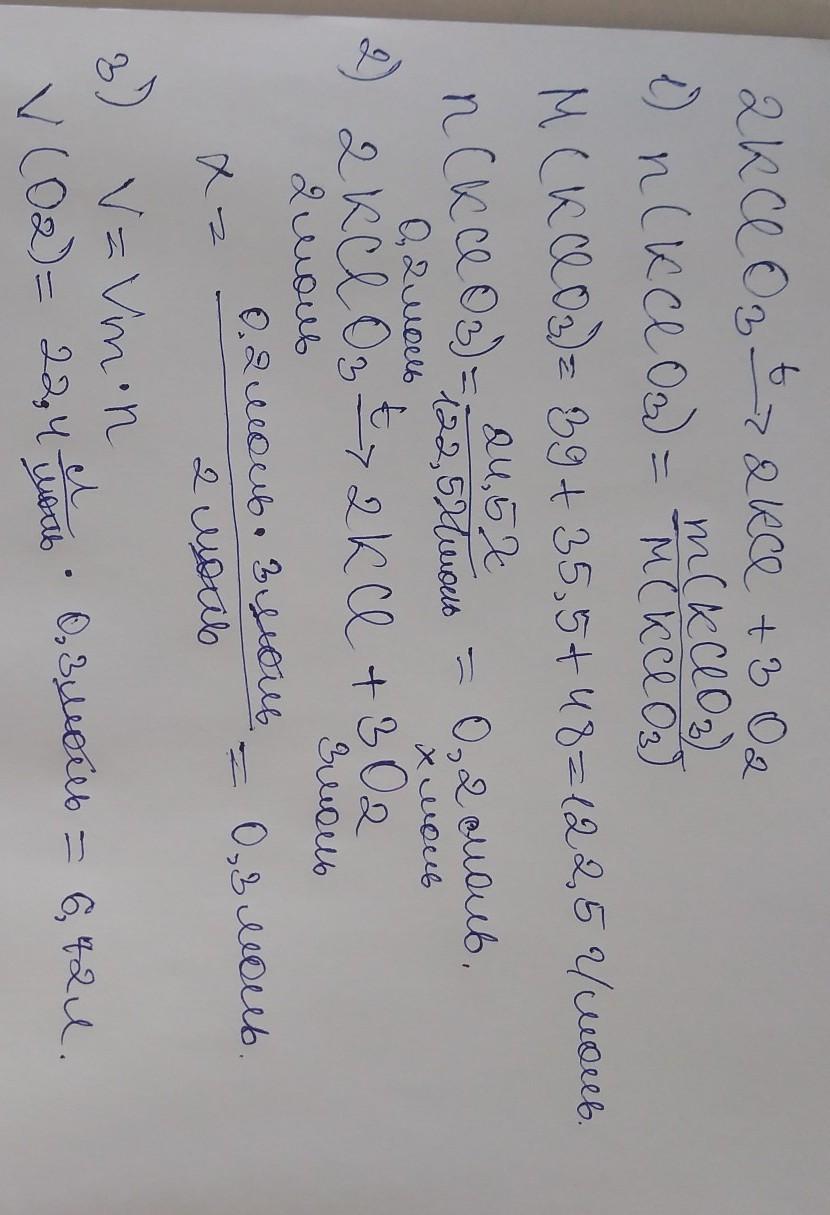 2KClO3 t→ 2KCl + 3O2
1) n(KClO3) = m(KClO3) / M(KClO3)
M(KClO3) = 39 + 35,5 + 48 = 122,5 г/моль.
n(KClO3) = 24,5г / 122,5г/моль = 0,2 моль.
0,2моль x моль
2) 2KClO3 t→ 2KCl + 3O2
2моль 3моль
x = 0,2моль · 3моль / 2 моль = 0,3 моль.
3) V = Vm · n
V(O2) = 22,4 л/моль · 0,3моль = 6,72л.